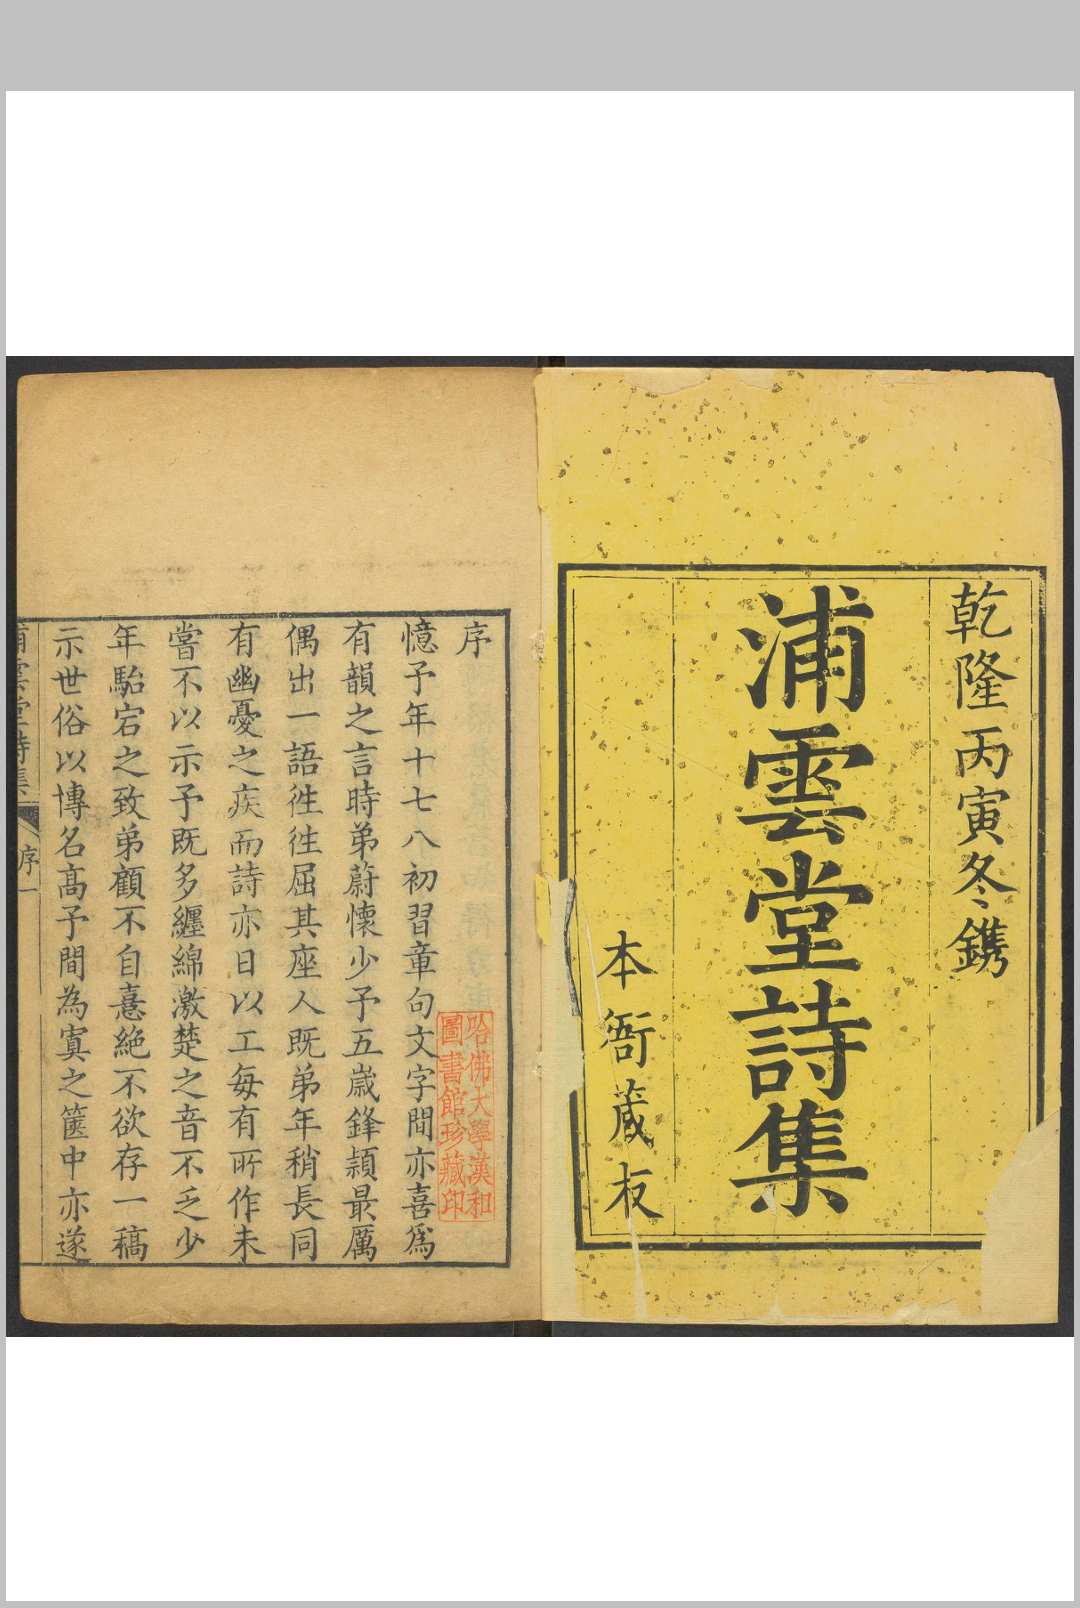 乾隆丙寅冬鐫
浦雲堂詩集
本衙藏板
序
憶予年十七八初習章句文字間亦喜爲
有韻之言時弟蔚懷少予五歲鋒頴最厲
偶出一語徃徃屈其座人既弟年稍長同
有幽憂之疾而詩亦日以工每有所作未
嘗不以示予既多纏綿激楚之音不乏少
年駘宕之致弟顧不自憙絕不欲存一稿
示世俗以博名高予間為寘之篋中亦遂
浦雲堂詩集
序一
哈佛大學漢和
圖書館珍藏印